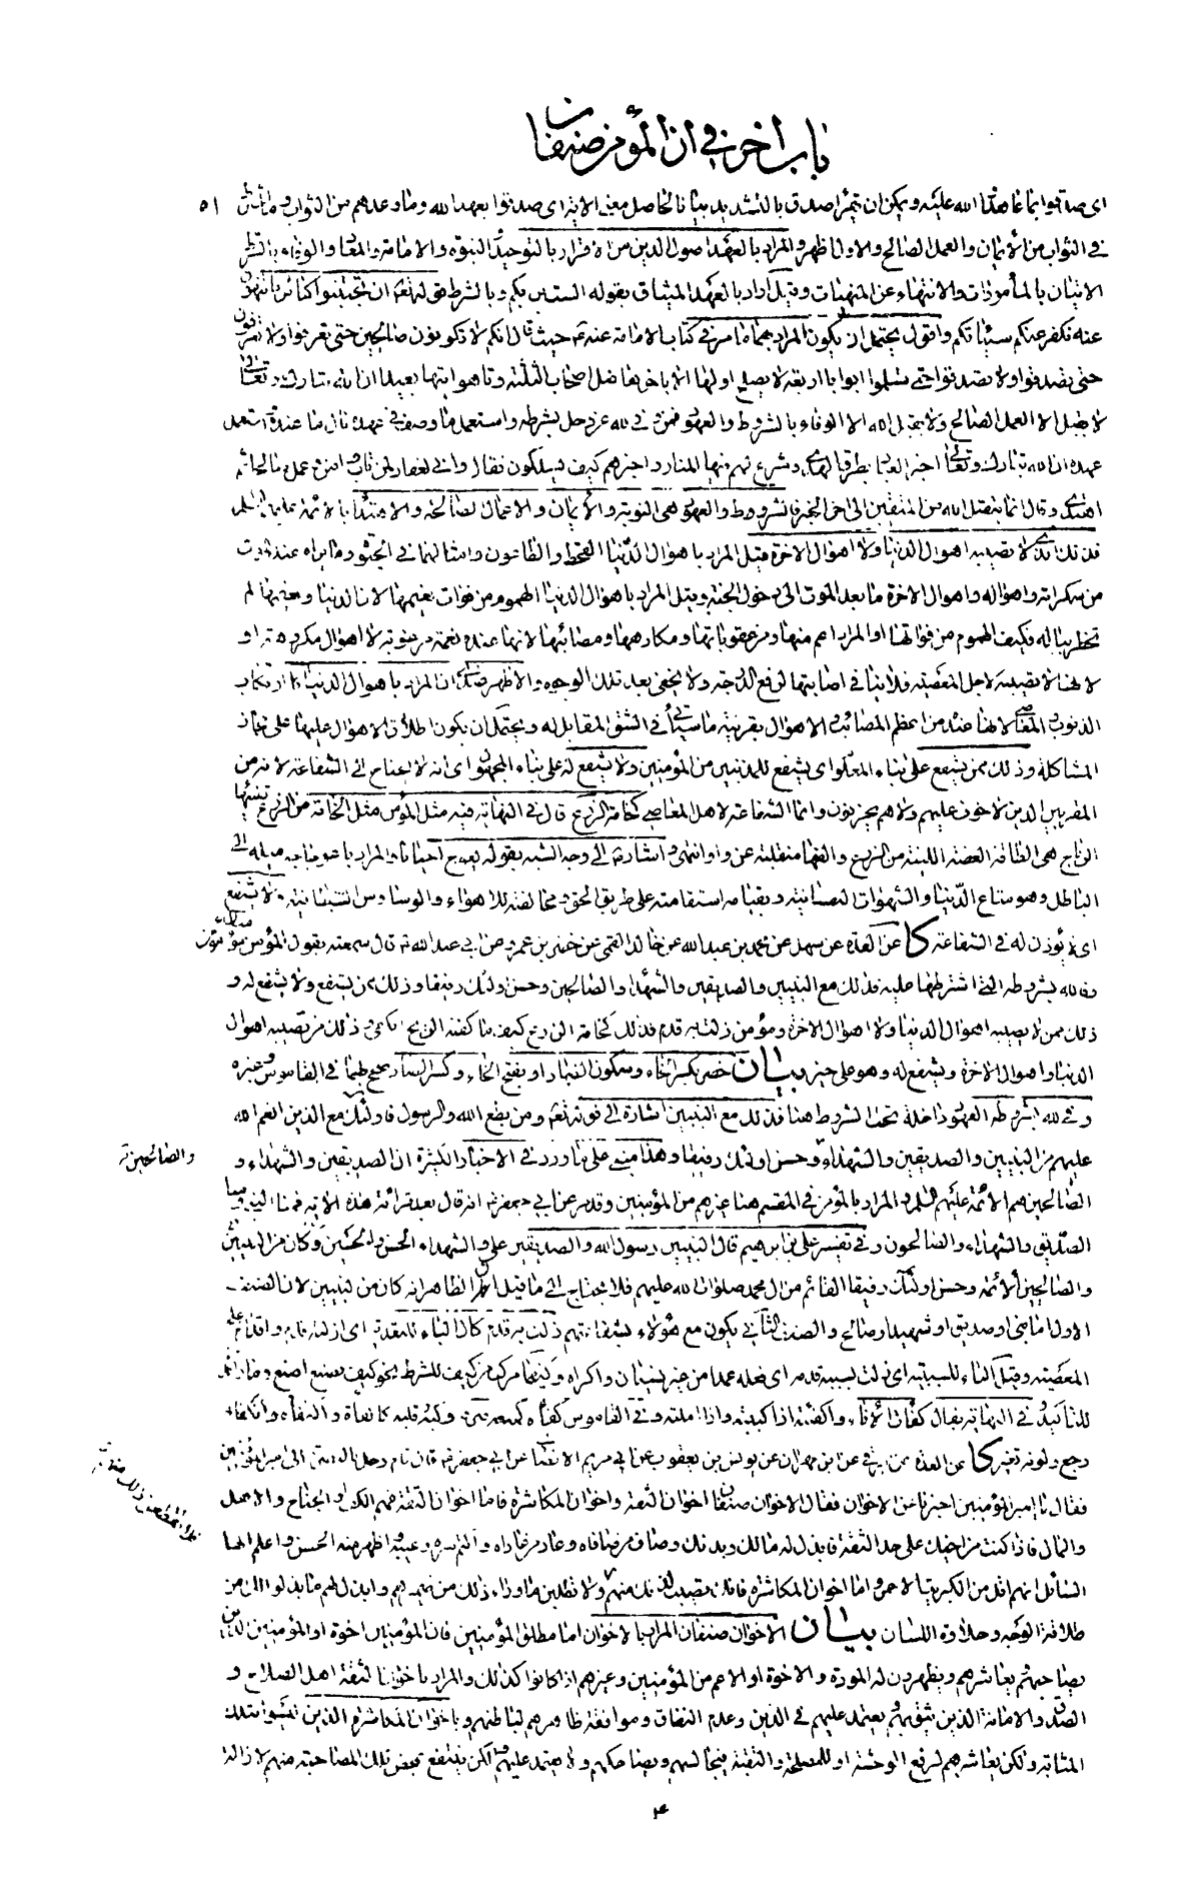 باب اخر في ان المؤمن صنفان
اى صدقوا بما عاهدوا الله عليه ويمكن ان يقرأ صدق بالتشديد بيانا لحاصل معنى الاية اى صدقوا بعهد الله وما وعدهم من الثواب و ٥١
في الثواب من الأيمان والعمل الصالح والاول اظهر والمراد بالعهد اصول الدين من الاقرار بالتوحيد والنبوة والامامة والمعاد والوفاء بالشرط
الاتيان بالمأمورات والانتهاء عن المنهيات وقيل اراد بالعهد الميثاق بقوله الست بربكم وبالشرط قوله تعالى ان تجتنبوا كبائر ما تنهون
عنه نكفر عنكم سيئاتكم واقول يحتمل ان يكون المراد بهما ما مر في كتاب الامامة عنه حيث قال انكم لا تكونون صالحين حتى تعرفوا ولا تعرفون
حتى تصدقوا ولا تصدقوا حتى تسلموا ابوابا اربعة لا يصلح اولها الا باخرها ضل اصحاب الثلثة وتاهوا تيها بعيدا ان الله تبارك وتعالى
لا يقبل الا العمل الصالح ولا يتقبل الله الا الوفاء بالشروط والعهود فمن وفى لله عز وجل بشرطه واستعمل ما وصف في عهده نال ما عنده واستعمل
عهده ان الله تبارك وتعالى اخبر العباد بطرق الهدى وشرع لهم فيها المنار واخبرهم كيف يسلكون فقال واني لغفار لمن تاب وامن وعمل صالحا ثم
اهتدى وقال انما يتقبل الله من المتقين الى اخر الخبر فالشروط والعهود هي التوبة والأيمان والاعمال الصالحة والاهتداء بالائمة عليهم السلم
فذلك الذى لا يصيبه اهوال الدنيا ولا اهوال الاخرة قيل المراد باهوال الدنيا القحط والطاعون وامثالهما في الحيوة وما يراه عند الموت
من سكراته واهواله واهوال الاخرة ما بعد الموت الى دخول الجنة وقيل المراد باهوال الدنيا الهموم من فوات نعيمها لان الدنيا ونعيمها لم
تخطر بباله فكيف الهموم من فواتها او المراد اعم منها ومن عقوباتها ومكارهها ومصائبها لانها عنده نعمة مرغوبة لا اهوال مكروهة او
لانها لا تصيبه لاجل المعصية فلا ينافى اصابتها لرفع الدرجة ولا يخفى بعد تلك الوجوه والاظهر عندى ان المراد باهوال الدنيا ارتكاب
الذنوب والمعاصى لانها عنده من اعظم المصائب والاهوال بقرينة ما سيأتى في الشق المقابل له ويحتمل ان يكون اطلاق الاهوال عليها على مجاز
المشاكلة وذلك ممن يشفع على بناء المعلوم اى يشفع للمذنبين من المؤمنين ولا يشفع له على بناء المجهول اى انه لا يحتاج الى الشفاعة لانه من
المقربين الذين لا خوف عليهم ولا هم يحزنون وانما الشفاعة لاهل المعاصى كخامة الزرع قال في النهاية فيه مثل المؤمن مثل الخامة من الزرع تفيئها
الرياح هى الطاقة الغضة اللينة من الزرع والفها منقلبة عن واو انتهى واشار الى وجه الشبه بقوله يعوج احيانا والمراد باعوجاجه ميله الى
الباطل وهو متاع الدنيا والشهوات النفسانية وبقيامه استقامته على طريق الحق ومخالفته للاهواء والوساوس الشيطانية ولا يشفع
اى لا يؤذن له في الشفاعة كا عن العدة عن سهل عن محمد بن عبد الله عن خالد القمى عن خضر بن عمرو عن ابي عبد الله قال سمعته يقول المؤمن مؤمنان مؤمن
وفى لله بشروطه التى اشترطها عليه فذلك مع النبيين والصديقين والشهداء والصالحين وحسن اولئك رفيقا وذلك من يشفع ولا يشفع له و
ذلك ممن لا يصيبه اهوال الدنيا ولا اهوال الاخرة ومؤمن زلت به قدم فذلك كخامة الزرع كيف ما كفته الريح انكفى وذلك من تصيبه اهوال
الدنيا واهوال الاخرة ويشفع له وهو على خير بيان خضر بكسر الخاء وسكون الضاد او بفتح الخاء وكسر الضاد صحح بهما في القاموس وغيره
وفى لله بشروطه العهود داخلة تحت الشروط هنا فذلك مع النبيين اشارة الى قوله تعالى ومن يطع الله والرسول فاولئك مع الذين انعم الله
عليهم من النبيين والصديقين والشهداء وحسن اولئك رفيقا وهذا مبنى على ما ورد في الاخبار الكثيرة ان الصديقين والشهداء و
والصالحين
الصالحين هم الائمة عليهم السلم والمراد بالمؤمن في المقسم هنا غيرهم من المؤمنين وقد مر عن ابي جعفر انه قال بعد قرائة هذه الاية فمنا النبى ومنا
الصديق والشهداء والصالحون وفي تفسير على بن ابرهيم قال النبيين رسول الله والصديقين على والشهداء الحسن والحسين وكان من النبيين
والصالحين الائمة وحسن اولئك رفيقا القائم من ال محمد صلوات الله عليهم فلا يحتاج الى ما قيل ان الظاهر انه كان من النبيين لان الصنف
الاول اما نبى او صديق او شهيد او صالح والصنف الثاني يكون مع هؤلاء بشفاعتهم زلت به قدم كان الباء للتعدية اى ازلته قدم واقدام على
المعصية وقيل الباء للسببية اى زلت بسببه قدمه اى فعله عمدا من غير نسيان واكراه وكيفما مركب من كيف للشرط نحو كيف تصنع اصنع وما زائدة
للتأكيد في النهاية يقال كفأت الاناء واكفأته اذا كببته واذا املته وفي القاموس كفأه كمنعه صرفه وكبه وقلبه كاكفأه واكتفأه وانكفأ
رجع ولونه تغير كا عن العدة عن البرقى عن ابن مهران عن يونس بن يعقوب عن ابى مريم الانصارى عن ابى جعفر قال قام رجل بالبصرة الى امير المؤمنين
فقال يا امير المؤمنين اخبرنا عن الاخوان فقال الاخوان صنفان اخوان الثقة واخوان المكاشرة فاما اخوان الثقة فهم الكف والجناح والاهل
والمال فاذا كنت من اخيك على حد الثقة فابذل له مالك وبدنك وصاف من صافاه وعاد من عاداه واكتم سره وعيبه واظهر منه الحسن واعلم ايها
السائل انهم اقل من الكبريت الاحمر واما اخوان المكاشرة فانك تصيب لذتك منهم ولا تطلبن ما وراء ذلك من ضميرهم وابذل لهم ما بذلوا لك من
طلاقة الوجه وحلاوة اللسان بيان الاخوان صنفان المراد بالاخوان اما مطلق المؤمنين فان المؤمنين اخوة او المؤمنين الذين
يصاحبهم يعاشرهم ويظهرون له المودة والاخوة او الاعم من المؤمنين وغيرهم اذا كانوا كذلك والمراد باخوان الثقة اهل الصلاح و
الصدق والامانة الذين يثق بهم ويعتمد عليهم في الدين وعدم النفاق وموافقة ظاهرهم لباطنهم وباخوان المكاشرة الذين ليسوا بتلك
المثابة ولكن يعاشرهم لرفع الوحشة او للمصلحة والتقية فيجالسهم ويضاحكهم ولا يعتمد عليهم ولكن ينتفع بمحض تلك المصاحبة منهم لازالة